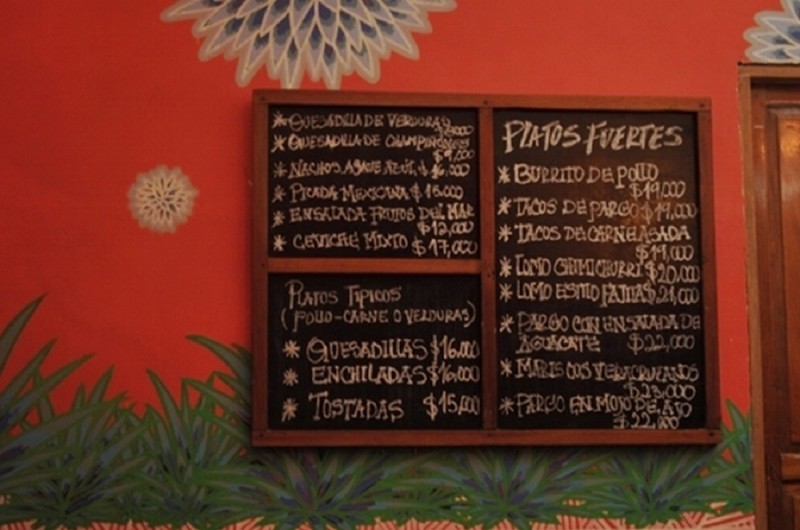 * QUESADILLA DE VERDURAS
* QUESADILLA DE CHAMPIÑONES
$9,000
* NACHOS AGAVE AZUL $
* PICADA MEXICANA $15.000
* ENSALADA FRUTOS DEL MAR
$12,000
* CEVICHE MIXTO $17,000
PLATOS TIPICOS
(POLLO-CARNE O VERDURAS)
* QUESADILLAS $16.000
* ENCHILADAS $16,000
* TOSTADAS $15,000
PLATOS FUERTES
* BURRITO DE POLLO
$19,000
* TACOS DE PARGO $19,000
* TACOS DE CARNE ASADA
$19,000
* LOMO CHIMICHURRI $20,000
* LOMO ESTILO FAJITAS 21,000
* PARGO CON ENSALADA DE
AGUACATE $22,000
* MARISCOS VERACRUZANOS
$23,000
* PARGO EN MOJO DE AJO
$22,000